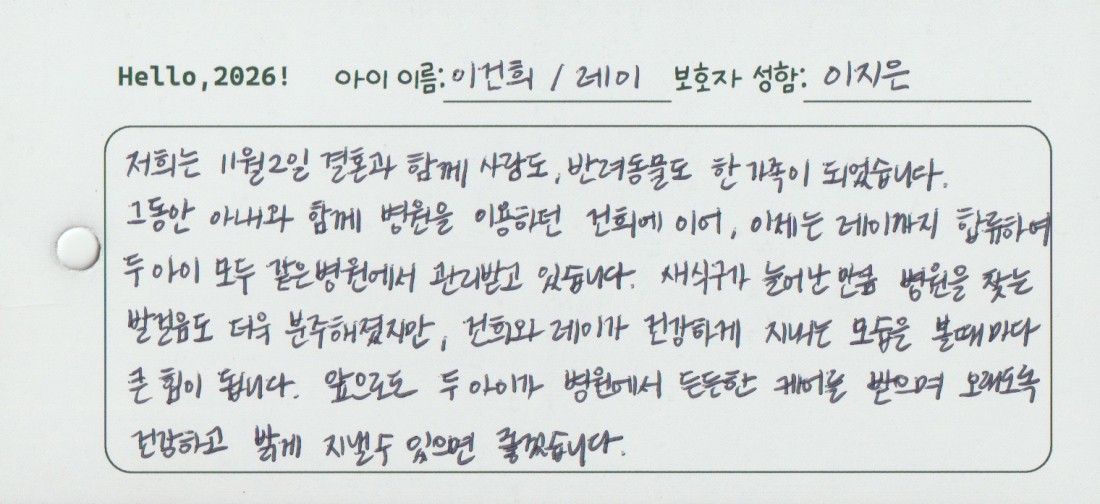 Hello,2026! 아이 이름: 이건희 / 레이 보호자 성함: 이지은
저희는 11월2일 결혼과 함께 사람도, 반려동물도 한 가족이 되었습니다.
그동안 아내와 함께 병원을 이용하던 건희에 이어, 이제는 레이까지 합류하여
두 아이 모두 같은병원에서 관리받고 있습니다. 새식구가 늘어난 만큼 병원을 찾는
발걸음도 더욱 분주해졌지만, 건희와 레이가 건강하게 지내는 모습을 볼때마다
큰 힘이 됩니다. 앞으로도 두 아이가 병원에서 든든한 케어를 받으며 오래도록
건강하고 밝게 지낼수 있으면 좋겠습니다.